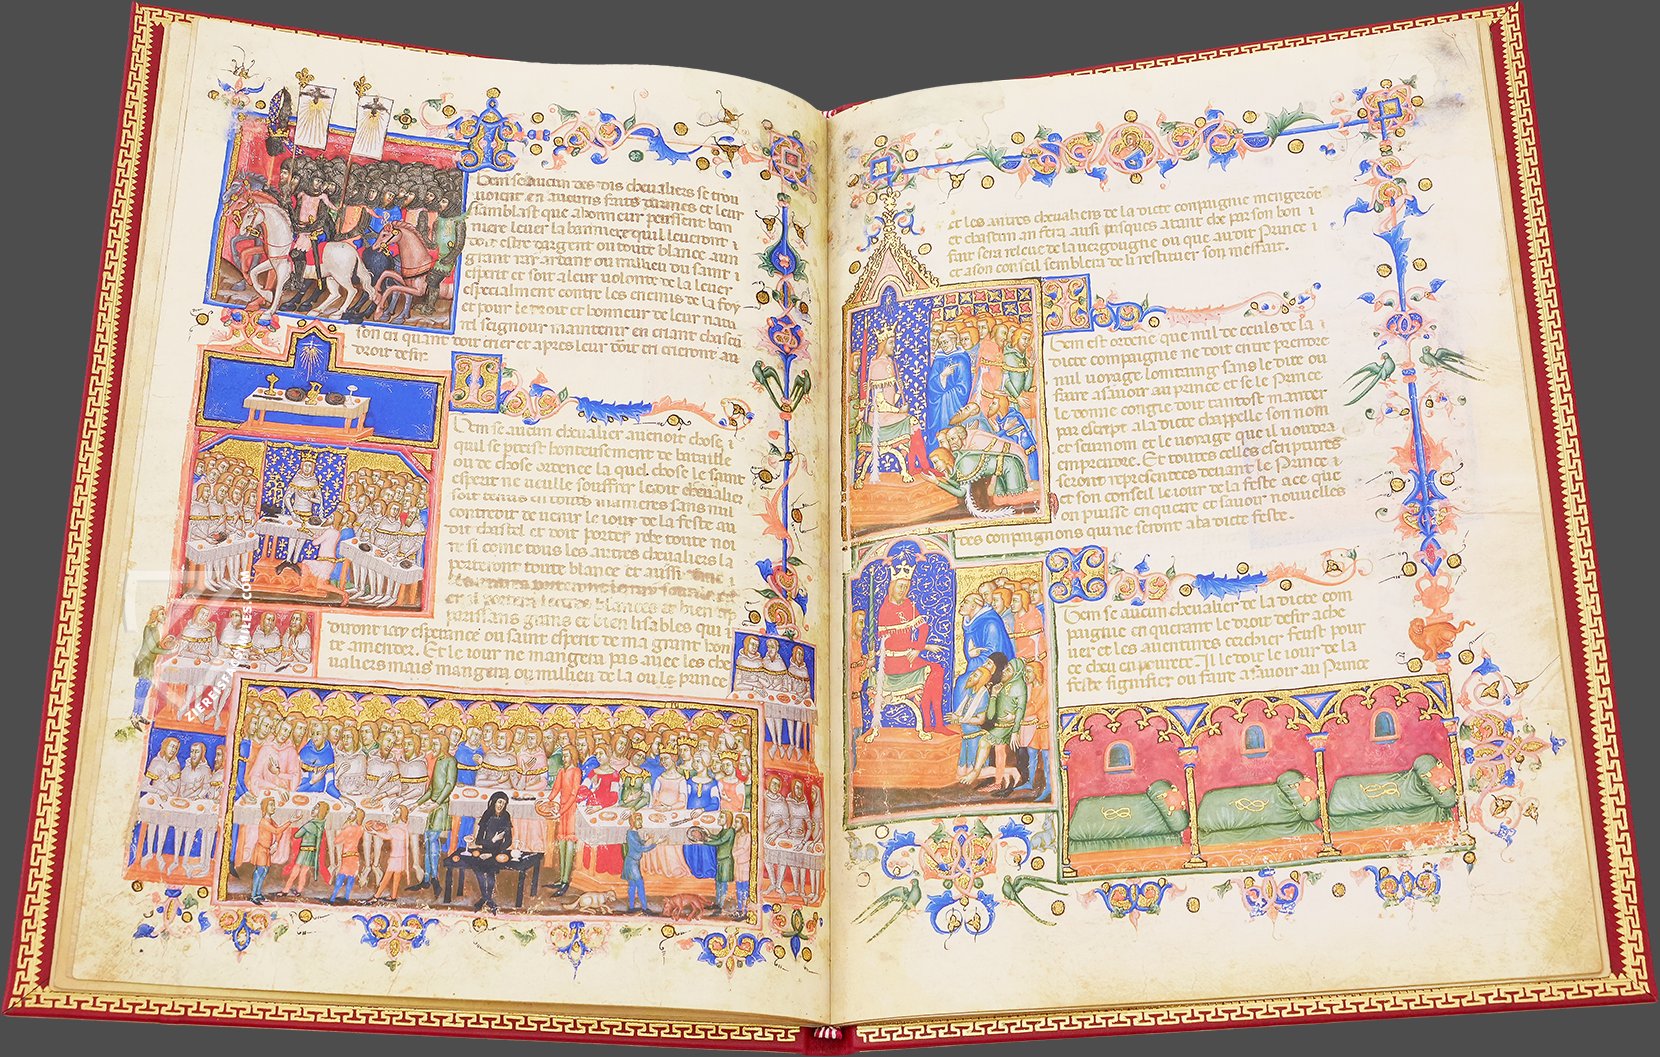 Item se aucun des dis chevaliers se trou
voient en aucuns faits darmes et leur
samblast que a honneur peussent ban
niere lever la banniere quil leveront i
doit estre dargent ou toute blanche aun
grant rai ardant ou milieu du saint i
esperit et soit a leur volonte de la lever
especialment contre les enemis de la foy
et pour le droit et honneur de leur natu
rel seignour maintenir en criant chascun
son cri quant doit crier et apres leur cri crieront au
droit desir.
Item se aucun chevalier avenoit chose i
quil se partist honteusement de bataille
ou de chose ordenee la quel chose le saint
esperit ne veulle souffrer le dit chevalier
soit tenus en toutes manieres sans nul
contredit de venir le jour de la feste au
dit chastel et doit porter robe toute noi
re si come tous les autres chevaliers la
porteront toute blanche et aussi
et si portera letres blanches et bien ap
parissans grans et bien lisables qui i
diront jay esperance ou saint esperit de ma grant hon
te amender. Et le jour ne mangera pas avec les che
valiers mais mangera ou milieu de la ou le prince
et les autres chevaliers de la dicte compaignie mengeront
et chascun an fera ausi jusques atant che par son bon i
fait sera releve de la vergougne ou que audit Prince i
et a son conseil semblera de li restituer son meffait.
Item est ordene que nul de ceuls de la i
dicte compaignie ne doit entre prendre
nul voyage lomtaing sans le dire ou
faire asavoir au prince et se le Prince
le donne congie doit tantost mander
par escript a la dicte chappelle son nom
et seurnom et le voyage que il voudra
emprendre. Et toutes celles escriptures
seront representees devant le Prince i
et son conseil le jour de la feste a ce que
on puisse enquere et savoir nouvelles
des compaignons qui ne seront a la dicte feste.
Item se aucun chevalier de la dicte com
paignie en querant le droit desir a che
ver et les aventures cerchier feust pour
ce cheu en povrete. Il le doit le jour de la
feste signifier ou faire asavoir au Prince
ZIEREIS FACSIMILES.COM